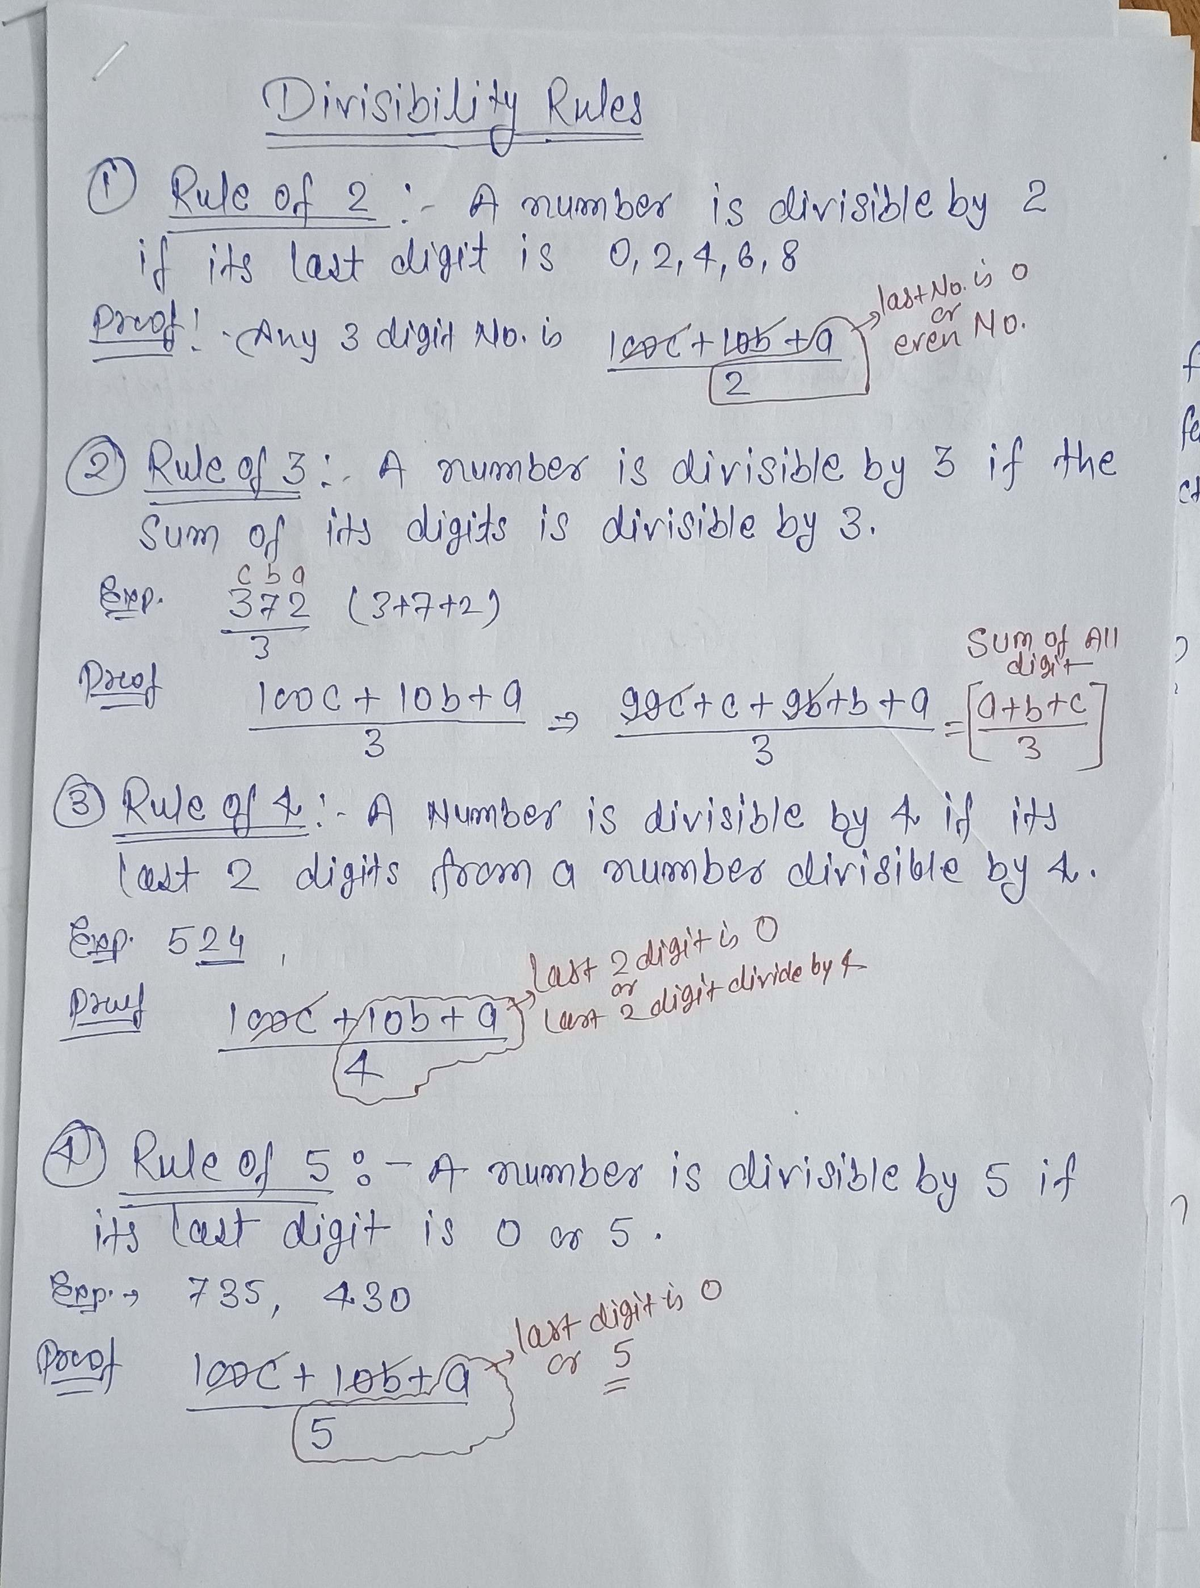 Divisibility Rules
① Rule of 2 :- A number is divisible by 2
if its last digit is 0, 2, 4, 6, 8
Proof! - Any 3 digit No. is 100c + 10b + a
2
last No. is 0
or
even No.
② Rule of 3 :- A number is divisible by 3 if the
Sum of its digits is divisible by 3.
c b a
Exp. 372 (3+7+2)
3
Proof 100c + 10b + a ⇒ 99c + c + 9b + b + a = [a+b+c]
3 3 3
Sum of All
digit
③ Rule of 4 :- A Number is divisible by 4 if its
last 2 digits from a number divisible by 4.
Exp. 524,
Proof 100c + 10b + a
4
last 2 digit is 0
or
last 2 digit divide by 4
④ Rule of 5 :- A number is divisible by 5 if
its last digit is 0 or 5.
Exp. → 735, 430
Proof 100c + 10b + a
5
last digit is 0
or 5